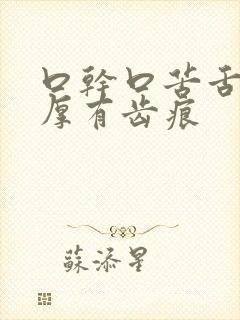 口幹口苦舌
厚有齿痕
蘇添星